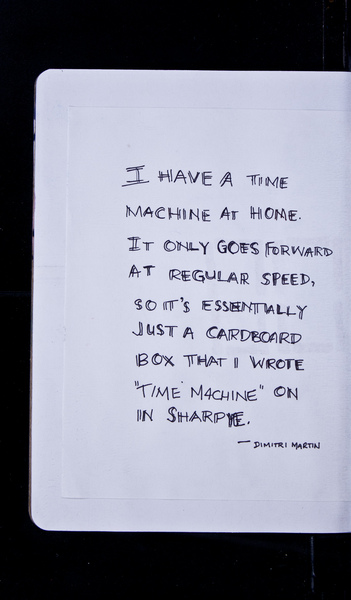 I HAVE A TIME
MACHINE AT HOME.
IT ONLY GOES FORWARD
AT REGULAR SPEED,
SO IT'S ESSENTIALLY
JUST A CARDBOARD
BOX THAT I WROTE
"TIME MACHINE" ON
IN SHARPYE.
— DIMITRI MARTIN